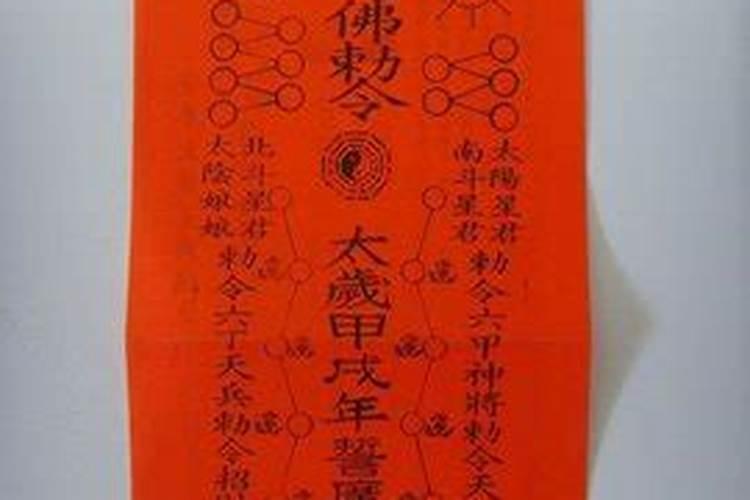 太陽星君
南斗星君
勅令六甲神將勅令天
佛勅令
太歲甲戌年誓
北斗星君
太陰娘娘
勅令六丁天兵勅令招